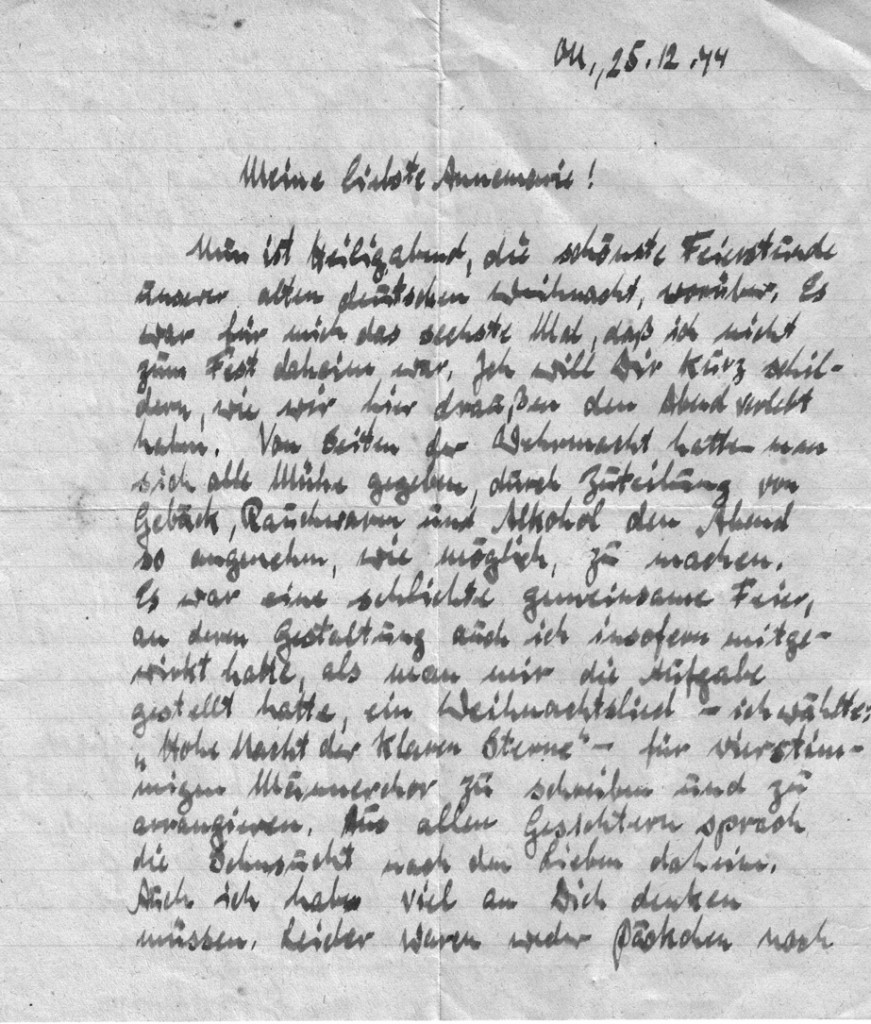 OU., 25.12.44
Meine liebste Annemarie!
Nun ist Heiligabend, die schönste Feierstunde
unserer alten deutschen Weihnacht, vorüber. Es
war für mich das sechste Mal, daß ich nicht
zum Fest daheim war. Ich will Dir kurz schil-
dern, wie wir hier draußen den Abend verlebt
haben. Von Seiten der Wehrmacht hatte man
sich alle Mühe gegeben, durch Zuteilung von
Gebäck, Rauchwaren und Alkohol den Abend
so angenehm, wie möglich, zu machen.
Es war eine schlichte gemeinsame Feier,
an deren Gestaltung auch ich insofern mitge-
wirkt hatte, als man mir die Aufgabe
gestellt hatte, ein Weihnachtslied - ich wählte:
"Hohe Nacht der klaren Sterne" - für vierstim-
migen Männerchor zu schreiben und zu
arrangieren. Aus allen Gesichtern sprach
die Sehnsucht nach den Lieben daheim.
Auch ich habe viel an Dich denken
müssen. Leider waren weder Päckchen noch